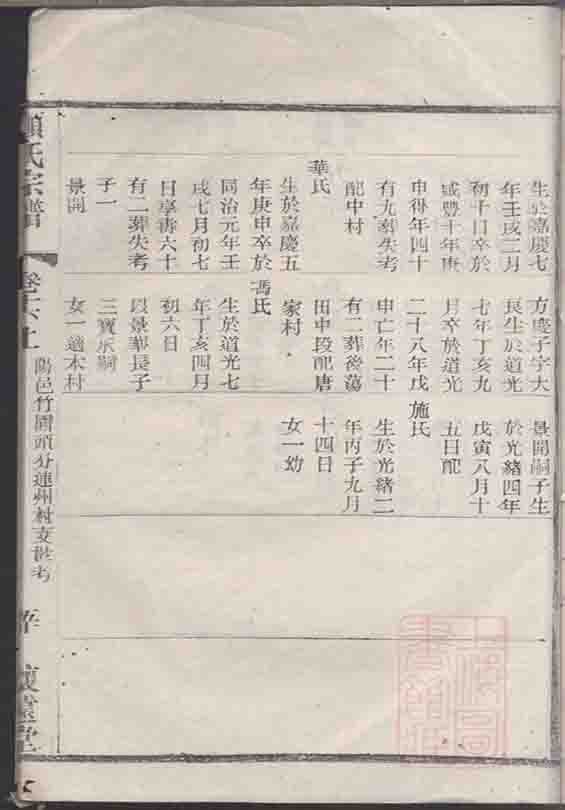 生於嘉慶七
年壬戌三月
初十日卒於
咸豐十年庚
申得年四十
有九葬失考
配中村
華氏
生於嘉慶五
年庚申卒於
同治元年壬
戌七月初七
日享壽六十
有二葬失考
子一
景開
方慶子字大
長生於道光
七年丁亥九
月卒於道光
二十八年戊
申亡年二十
有二葬後蕩
田中段配唐
家村
馮氏
生於道光七
年丁亥四月
初六日
以景華長子
三寶承嗣
女一適木村
景開嗣子生
於光緒四年
戊寅八月十
五日配
施氏
生於光緒二
年丙子九月
十四日
女一幼
顧氏宗譜
卷 上
陽邑竹園頭分遷州村支世考